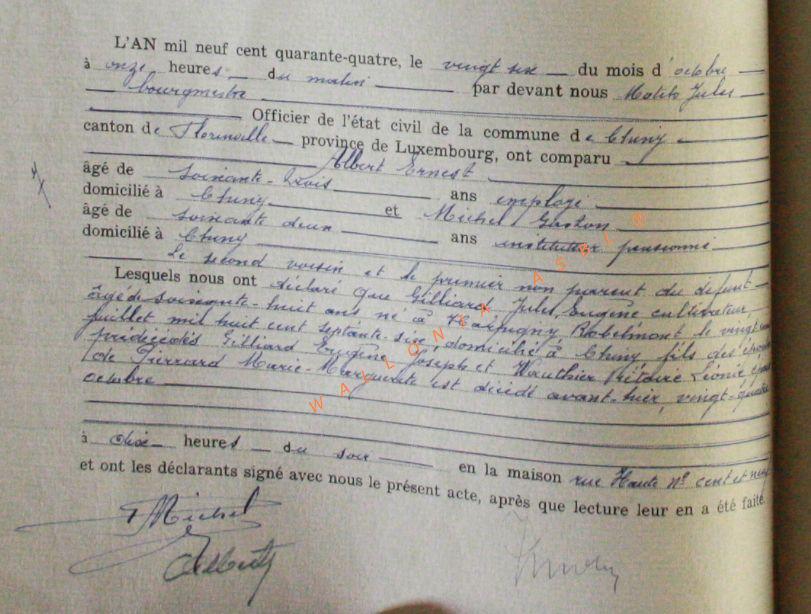 L'AN mil neuf cent quarante-quatre, le vingt six du mois d'octobre
à onze heures du matin par devant nous Jules
bourgmestre
Officier de l'état civil de la commune de Chiny
canton de Florenville province de Luxembourg, ont comparu
Albert Ernest
âgé de soixante-trois ans employé
domicilié à Chiny et Michel Gaston
âgé de soixante deux ans instituteur pensionné
domicilié à Chiny
Le second voisin et le premier non parent du défunt
Lesquels nous ont déclaré que Gilliard Jules, Eugène cultivateur,
âgé de soixante-huit ans né à Harpigny Robelmont le vingt
juillet mil huit cent septante-six, domicilié à Chiny fils des époux
prédécédés Gilliard Eugène Joseph et Wauthier Léonie époux
de Pierrard Marie-Marguerite est décédé avant-hier, vingt-quatre
octobre
à dix heures du soir en la maison rue Haute N° cent et neuf
et ont les déclarants signé avec nous le présent acte, après que lecture leur en a été faite.
Michel
Albert
WALLONIA ASBL